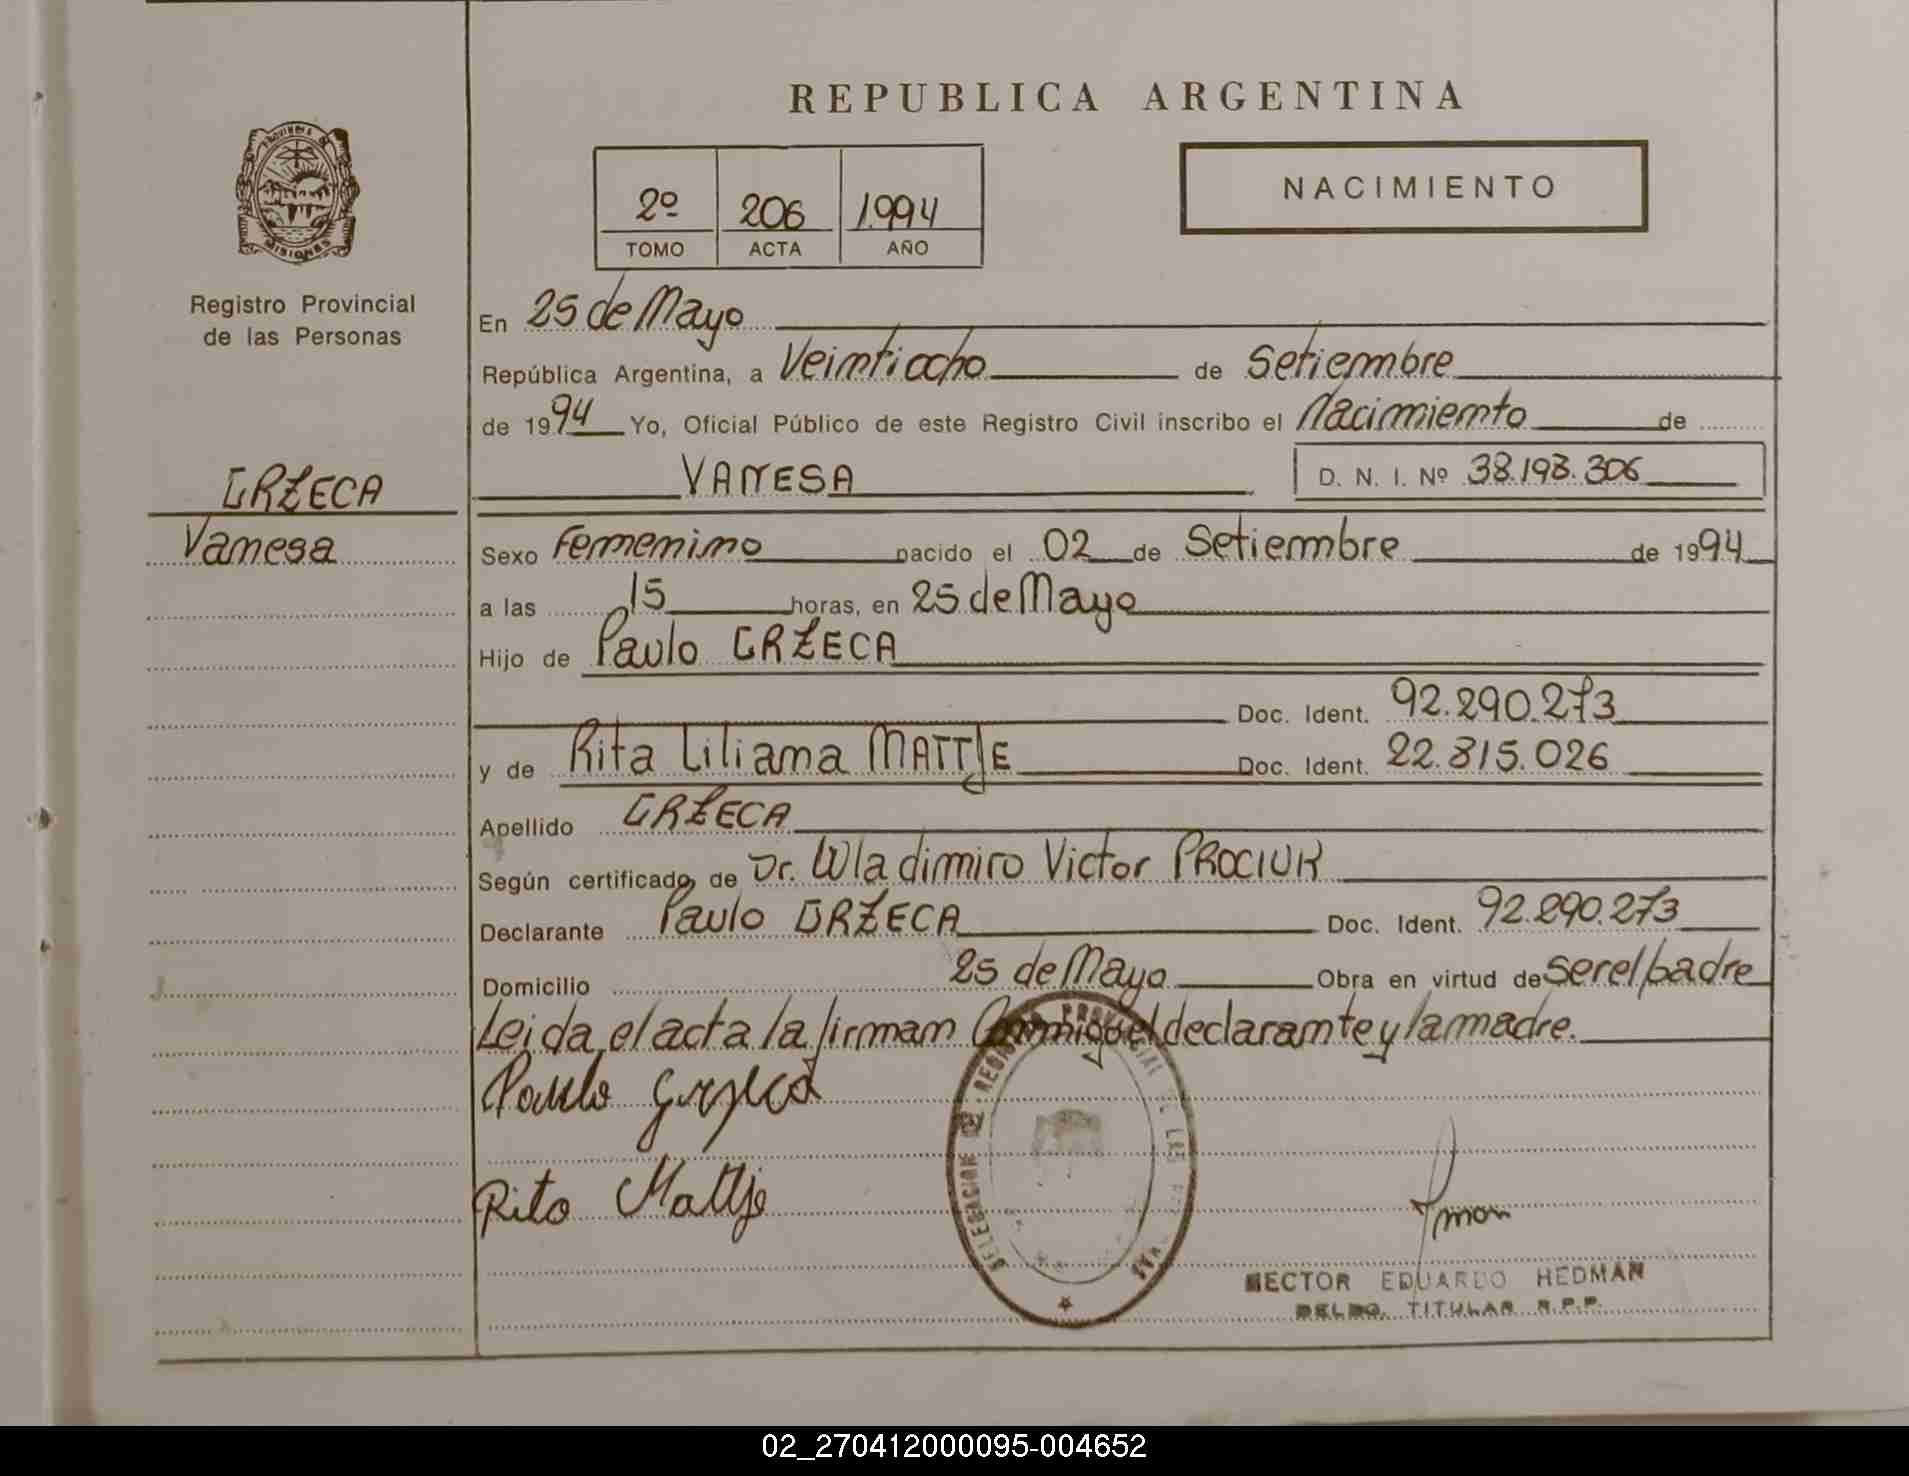 REPUBLICA ARGENTINA
NACIMIENTO
2º 206 1994
TOMO ACTA AÑO
PROVINCIA DE MISIONES
Registro Provincial
de las Personas
GRZECA
Vanesa
En 25 de Mayo
República Argentina, a Veintiocho de Setiembre
de 1994 Yo, Oficial Público de este Registro Civil inscribo el Nacimiento de
VANESA D. N. I. Nº 38.198.306
Sexo Femenino nacido el 02 de Setiembre de 1994
a las 15 horas, en 25 de Mayo
Hijo de Paulo GRZECA
Doc. Ident. 92.290.273
y de Rita Liliana MATTJE Doc. Ident. 22.815.026
Apellido GRZECA
Según certificado de Dr. Wladimiro Victor PROCIUK
Declarante Paulo GRZECA Doc. Ident. 92.290.273
Domicilio 25 de Mayo Obra en virtud de ser el padre
Leida el acta la firman Conmigo el declarante y la madre.
Paulo Grzeca
Rita Mattje
DELEGACION REGISTRO PROVINCIAL DE LAS
HECTOR EDUARDO HEDMAN
DELDO. TITULAR R.P.P.
02_270412000095-004652